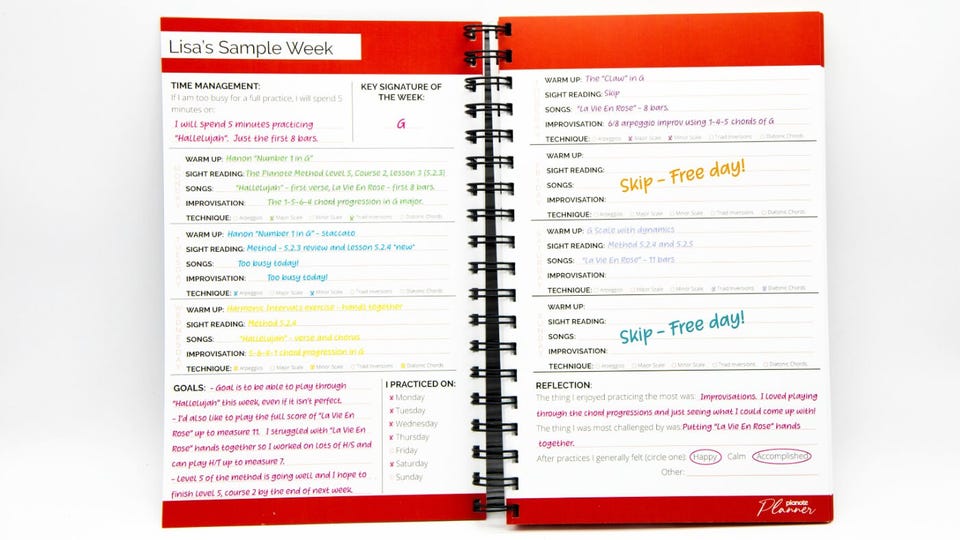 Lisa's Sample Week
TIME MANAGEMENT:
If I am too busy for a full practice, I will spend 5
minutes on:
I will spend 5 minutes practicing
"Hallelujah". Just the first 8 bars.
KEY SIGNATURE OF
THE WEEK:
G
WARM UP: Hanon "Number 1 in G"
SIGHT READING: The Pianote Method Level 5, Course 2, Lesson 3 (5.2.3)
SONGS: "Hallelujah" - first verse, La Vie En Rose - first 8 bars.
IMPROVISATION: The 1-5-6-4 chord progression in G major.
TECHNIQUE: Arpeggios x Major Scale Minor Scale x Triad Inversions Diatonic Chords
WARM UP: Hanon "Number 1 in G" - staccato
SIGHT READING: Method - 5.2.3 review and lesson 5.2.4 "new"
SONGS: Too busy today!
IMPROVISATION: Too busy today!
TECHNIQUE: x Arpeggios Major Scale x Minor Scale Triad Inversions Diatonic Chords
WARM UP: Harmonic Intervals exercise - hands together
SIGHT READING: Method 5.2.4
SONGS: "Hallelujah" - verse and chorus
IMPROVISATION: 5-6-4-1 chord progression in G
TECHNIQUE: Arpeggios Major Scale Minor Scale Triad Inversions Diatonic Chords
GOALS: - Goal is to be able to play through
"Hallelujah" this week, even if it isn't perfect.
- I'd also like to play the full score of "La Vie En
Rose" up to measure 11. I struggled with "La Vie En
Rose" hands together so I worked on lots of H/S and
can play H/T up to measure 7.
- Level 5 of the method is going well and I hope to
finish level 5, course 2 by the end of next week.
I PRACTICED ON:
x Monday
x Tuesday
x Wednesday
x Thursday
Friday
x Saturday
Sunday
WARM UP: The "Claw" in G
SIGHT READING: Skip
SONGS: "La Vie En Rose" - 8 bars.
IMPROVISATION: 6/8 arpeggio improv using 1-4-5 chords of G
TECHNIQUE: Arpeggios x Major Scale x Minor Scale Triad Inversions Diatonic Chords
WARM UP:
SIGHT READING:
SONGS: Skip - Free day!
IMPROVISATION:
TECHNIQUE: Arpeggios Major Scale Minor Scale Triad Inversions Diatonic Chords
WARM UP: G Scale with dynamics
SIGHT READING: Method 5.2.4 and 5.2.5
SONGS: "La Vie En Rose" - 11 bars
IMPROVISATION:
TECHNIQUE: Arpeggios Major Scale Minor Scale x Triad Inversions x Diatonic Chords
WARM UP:
SIGHT READING:
SONGS: Skip - Free day!
IMPROVISATION:
TECHNIQUE: Arpeggios Major Scale Minor Scale Triad Inversions Diatonic Chords
REFLECTION:
The thing I enjoyed practicing the most was: Improvisations. I loved playing
through the chord progressions and just seeing what I could come up with!
The thing I was most challenged by was: Putting "La Vie En Rose" hands
together.
After practices I generally felt (circle one): Happy Calm Accomplished
Other:
pianote
Planner